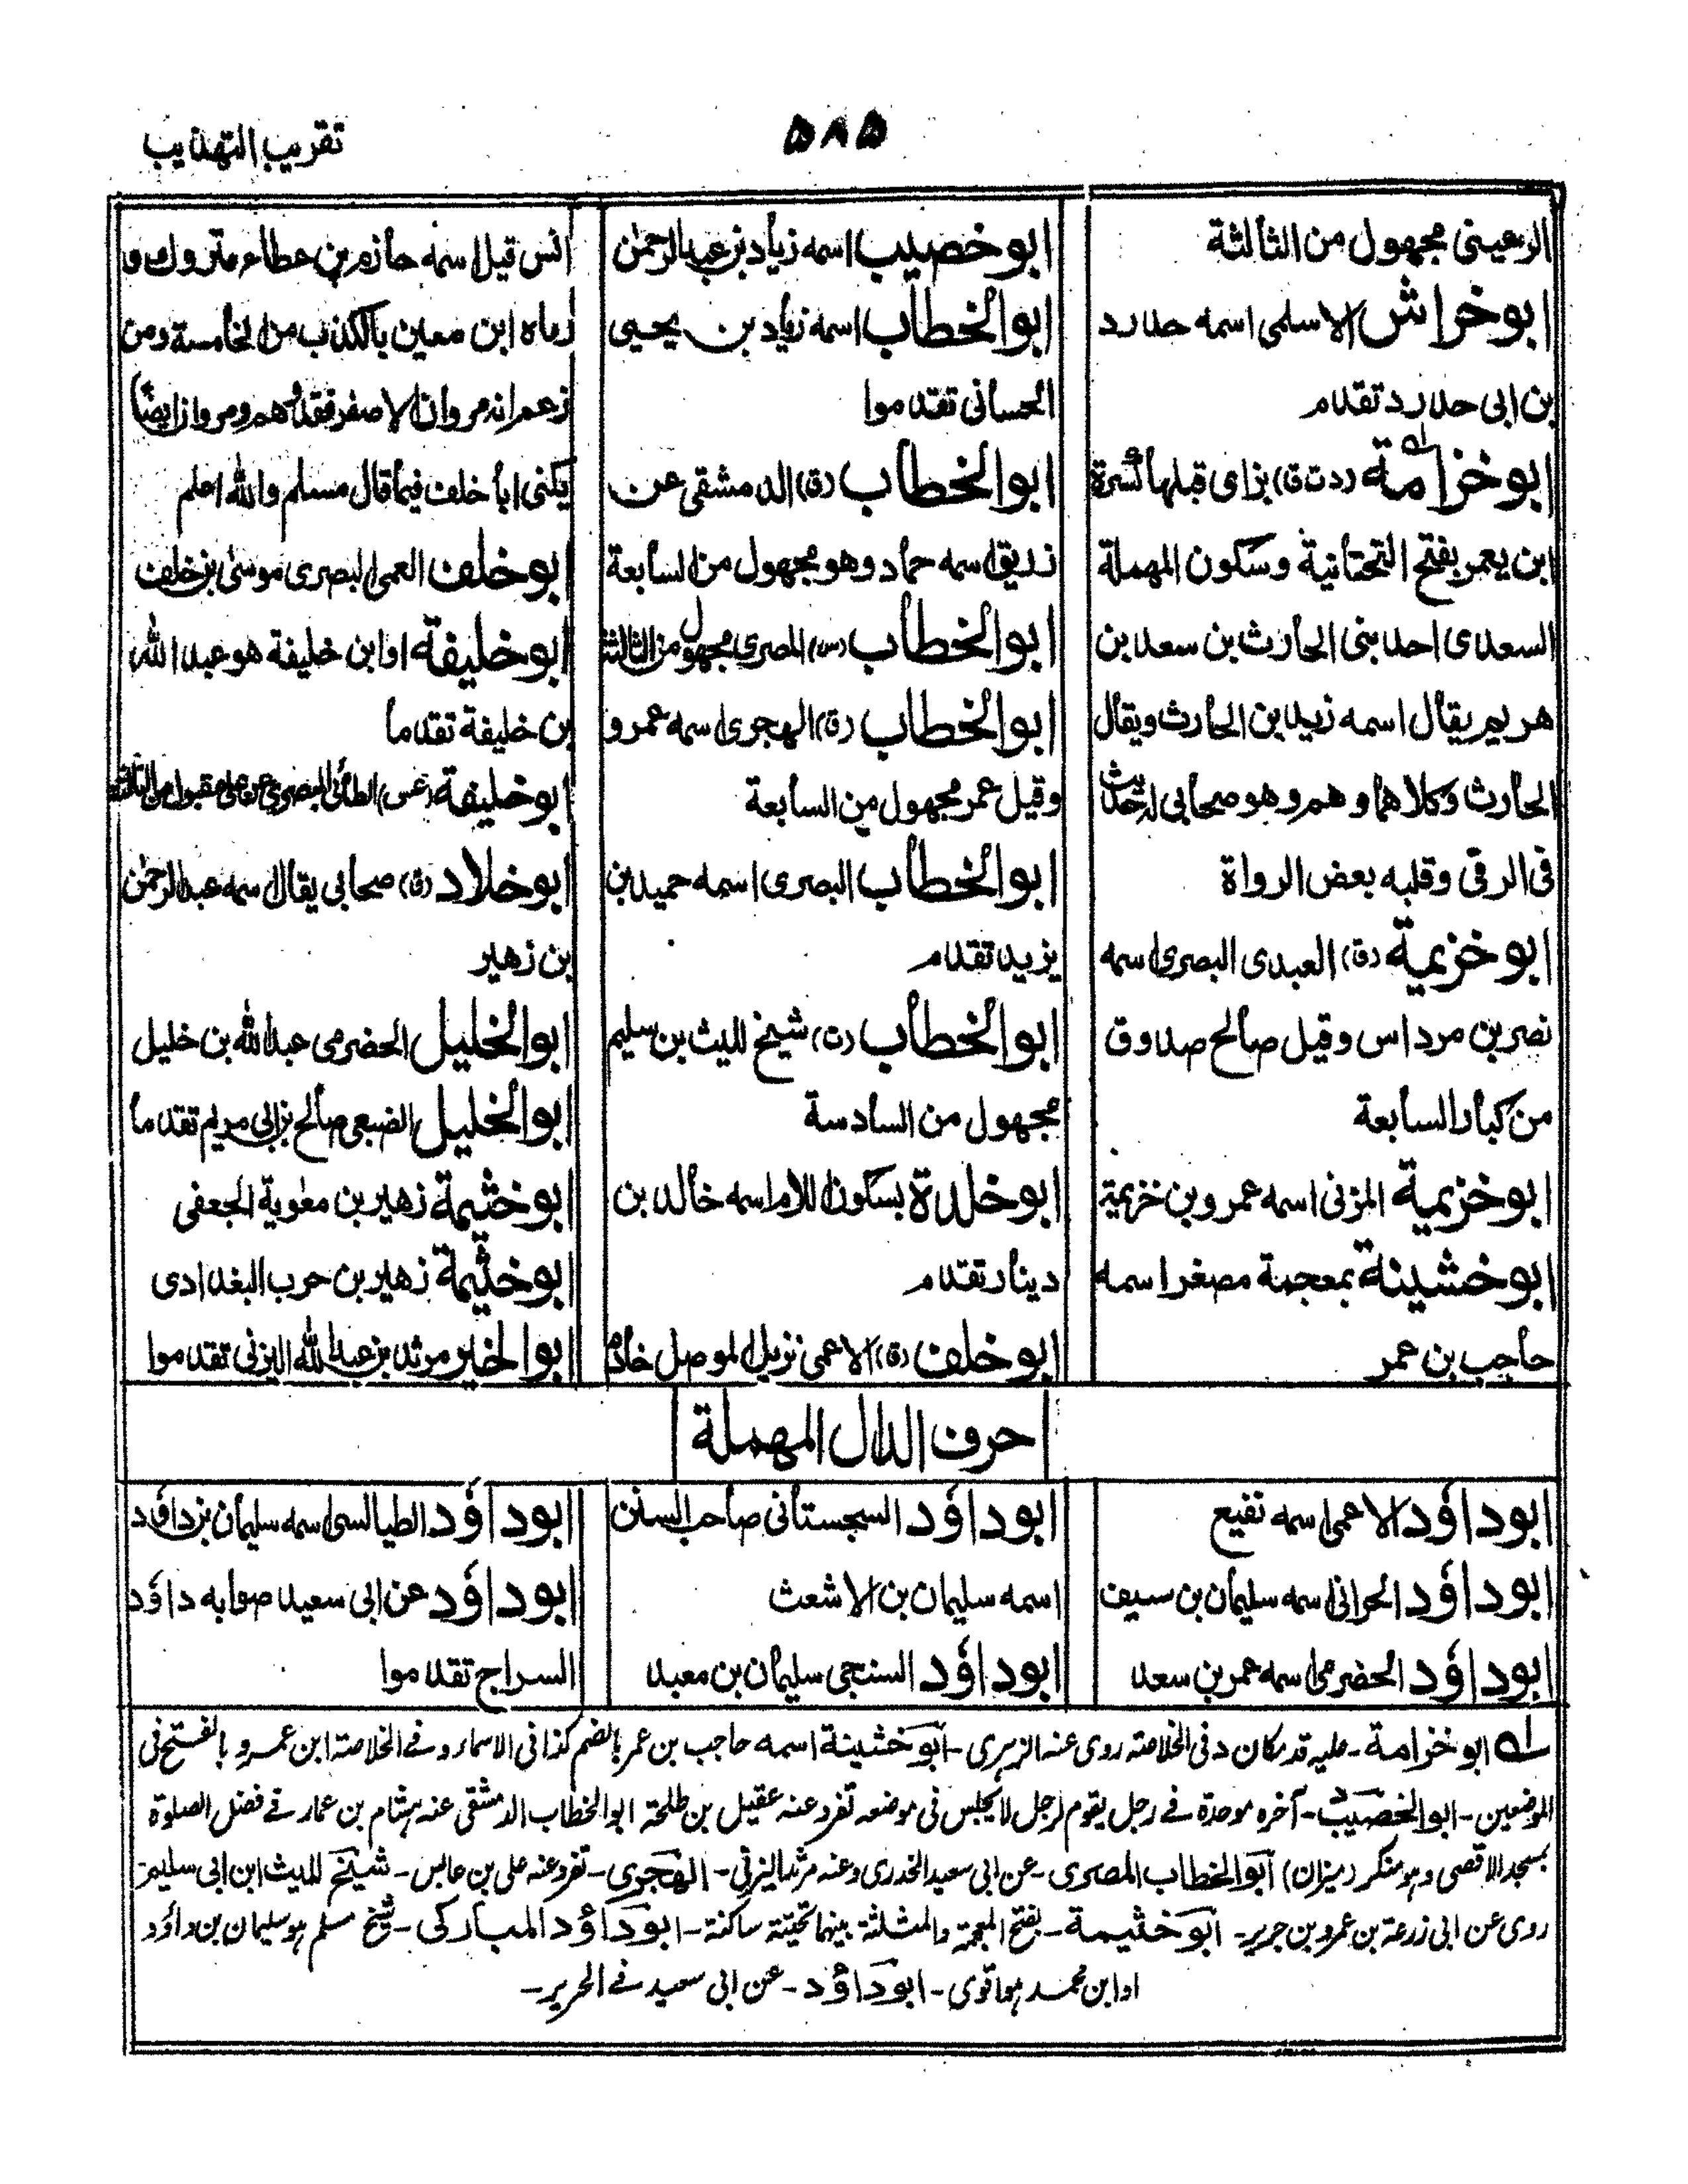 تقريب التهذيب
٥٨٥
الرعيني مجهول من الثالثة
ابوخراش الاسلمى اسمه حدرد
بن ابى حدرد تقدم
ابوخزامة (د ت ق) بزاى قبلها كسرة
ابن يعمر بفتح التحتانية وسكون المهملة
السعدى احد بنى الحارث بن سعد بن
هريم يقال اسمه زيد بن الحارث ويقال
الحارث وكلاهما وهم وهو صحابى له حديث
فى الرقى وقلبه بعض الرواة
ابوخزيمة (ق) العبدى البصرى اسمه
نصر بن مرداس وقيل صالح صدوق
من كبار السابعة
ابوخزيمة المزنى اسمه عمرو بن خزيمة
ابوخشينة بمعجمة مصغرا اسمه
حاجب بن عمر
ابوخصيب اسمه زياد بن عبد الرحمن
ابوالخطاب اسمه زياد بن يحيى
الحسانى تقدموا
ابوالخطاب (ق) الدمشقى عن
زريق اسمه حماد وهو مجهول من السابعة
ابوالخطاب (س) المصرى مجهول من الثالثة
ابوالخطاب (ق) الهجرى اسمه عمرو
وقيل عمر مجهول من السابعة
ابوالخطاب البصرى اسمه حميد بن
يزيد تقدم
ابوالخطاب (ت) شيخ لليث بن سليم
مجهول من السادسة
ابوخلدة بسكون اللام اسمه خالد بن
دينار تقدم
ابوخلف (ق) الاعمى نزيل الموصل خادم
انس قيل اسمه حازم بن عطاء متروك و
رماه ابن معين بالكذب من الخامسة ومن
زعم انه مروان الاصفر فقد وهم ومروان ايضا
يكنى ابا خلف فيما قال مسلم والله اعلم
ابوخلف العمى البصرى موسى بن خلف
ابوخليفة او ابن خليفة هو عبد الله
بن خليفة تقدما
ابوخليفة (عس) الطائى البصرى عن على مقبول من الثالثة
ابوخلاد (ق) صحابى يقال اسمه عبد الرحمن
بن زهير
ابوالخليل الحضرمى عبد الله بن خليل
ابوالخليل الضبعى صالح بن ابى مريم تقدما
ابوخثيمة زهير بن معوية الجعفى
ابوخثيمة زهير بن حرب البغدادى
ابوالخير مرثد بن عبد الله اليزنى تقدموا
حرف الدال المهملة
ابوداؤد الاعمى اسمه نفيع
ابوداؤد الحرانى اسمه سليمان بن سيف
ابوداؤد الحضرمى اسمه عمر بن سعد
ابوداؤد السجستانى صاحب السنن
اسمه سليمان بن الاشعث
ابوداؤد السنجى سليمان بن معبد
ابوداؤد الطيالسى اسمه سليمان بن داؤد
ابوداؤد عن ابى سعيد صوابه داؤد
السراج تقدموا
له ابو خزامة - عليه قد مكان د فى الخلاصه روى عنه الزهرى - ابوخشينة اسمه حاجب بن عمر بالضم كذا فى الاسماء و فے الخلاصة ابن عمرو بالفتح فى
الموضعين - ابو الخصيب - آخره موحدة فے رجل يقوم لرجل لا يجلس فى موضعه تفرد عنه عقيل بن طلحة ابو الخطاب الدمشقى عنه هشام بن عمار فے فضل الصلوة
بمسجد الاقصى وهو منكر (ميزان) ابو الخطاب المصرى - عن ابى سعيد الخدرى وعنه مرثد اليزنى - الهجرى - تفرد عنه على بن عابس - شيخ لليث ابن ابى سليم
روى عن ابى زرعة بن عمرو بن جرير - ابوخثيمة - بفتح المعجمة والمثلثة بينهما تحتية ساكنة - ابوداؤد المباركى - شيخ مسلم هو سليمان بن داؤد
او ابن محمد هو اقوى - ابوداؤد - عن ابى سعيد فے الحرير -